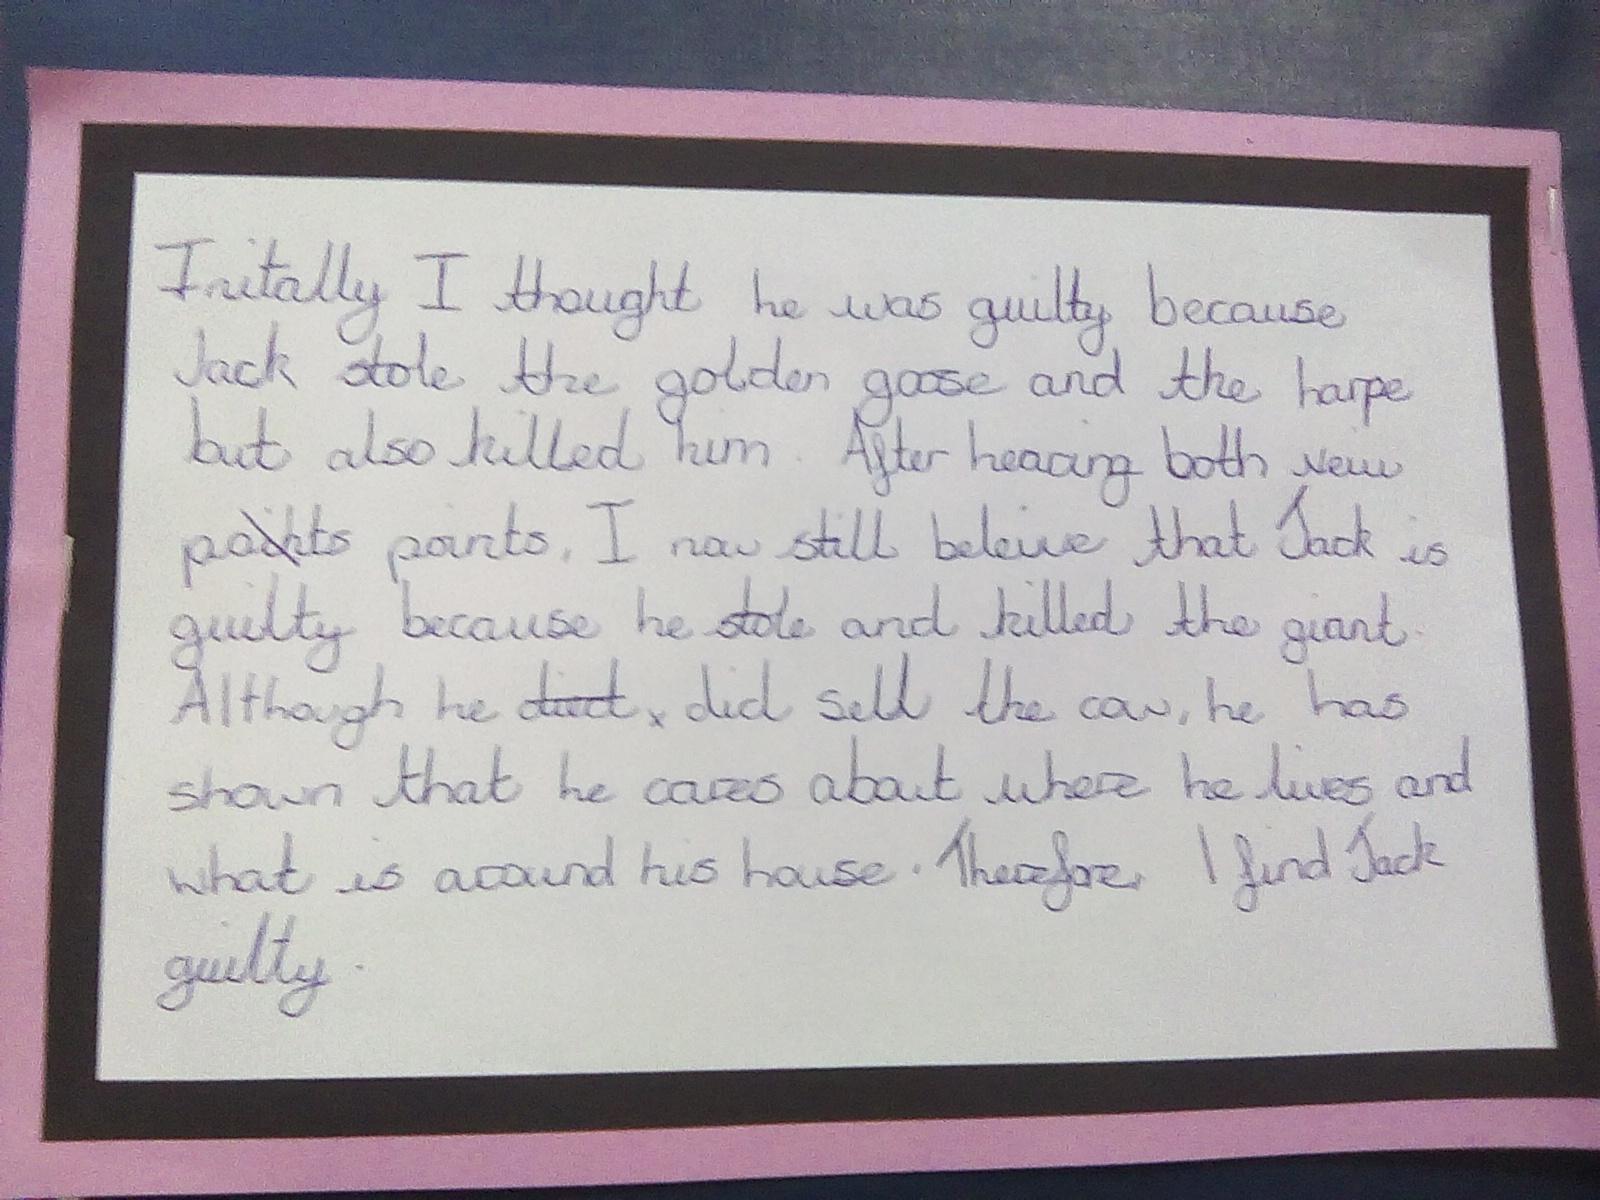 Initally I thought he was guilty because
Jack stole the golden goose and the harpe
but also killed him. After hearing both view
points points, I now still beleive that Jack is
guilty because he stole and killed the giant.
Although he did sell the cow, he has
shown that he cares about where he lives and
what is around his house. Therefore, I find Jack
guilty.